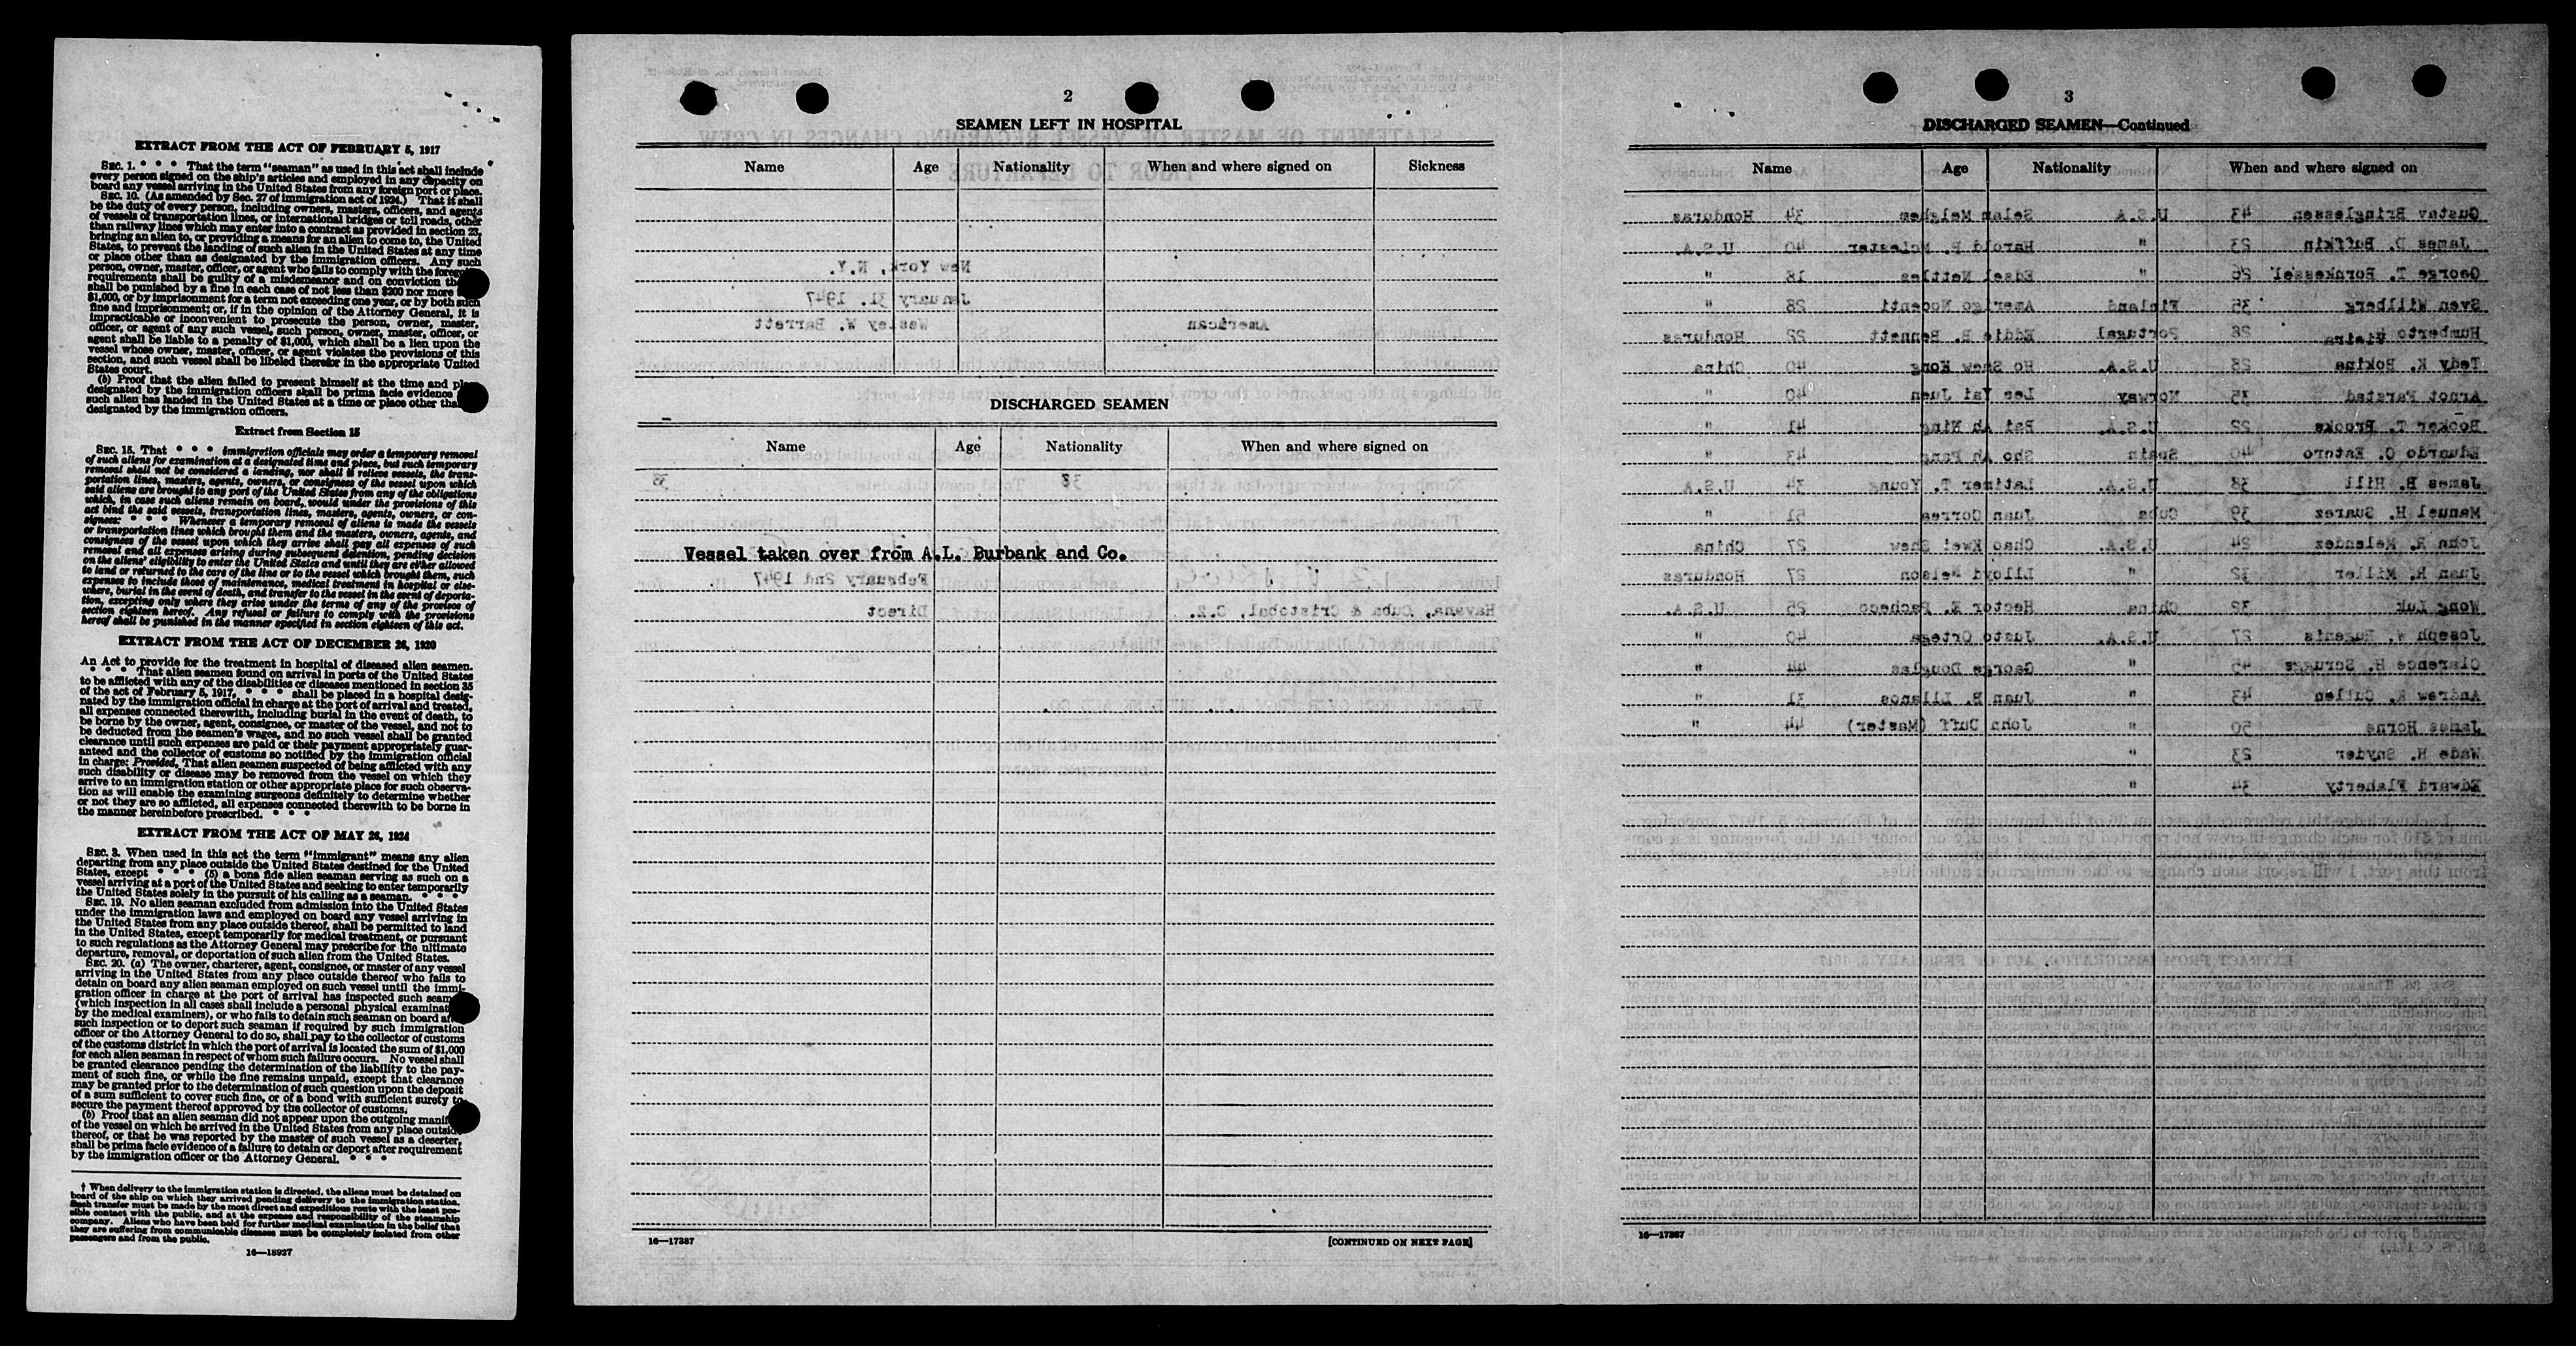 EXTRACT FROM THE ACT OF FEBRUARY 5, 1917
SEC. 1. * * * That the term "seaman" as used in this act shall include
every person signed on the ship's articles and employed in any capacity on
board any vessel arriving in the United States from any foreign port or place.
SEC. 10. (As amended by Sec. 27 of immigration act of 1924.) That it shall
be the duty of every person, including owners, masters, officers, and agents
of vessels of transportation lines, or international bridges or toll roads, other
than railway lines which may enter into a contract as provided in section 23,
bringing an alien to, or providing a means for an alien to come to, the United
States, to prevent the landing of such alien in the United States at any time
or place other than as designated by the immigration officers. Any such
person, owner, master, officer, or agent who fails to comply with the
requirements shall be guilty of a misdemeanor and on conviction
shall be punished by a fine in each case of not less than $200 nor more
$1,000, or by imprisonment for a term not exceeding one year, or by both such
fine and imprisonment; or, if in the opinion of the Attorney General, it is
impracticable or inconvenient to prosecute the person, owner, master,
officer, or agent of any such vessel, such person, owner, master, officer, or
agent shall be liable to a penalty of $1,000, which shall be a lien upon the
vessel whose owner, master, officer, or agent violates the provisions of this
section, and such vessel shall be libeled therefor in the appropriate United
States court.
(b) Proof that the alien failed to present himself at the time and
designated by the immigration officers shall be prima facie evidence
such alien has landed in the United States at a time or place other
designated by the immigration officers.
Extract from Section 15
SEC. 15. That * * * immigration officials may order a temporary removal
of such aliens for examination at a designated time and place, but such temporary
removal shall not be considered a landing, nor shall it relieve vessels, the trans-
portation lines, masters, agents, owners, or consignees of the vessel upon which
said aliens are brought to any port of the United States from any of the obligations
which, in case such aliens remain on board, would under the provisions of this
act bind the said vessels, transportation lines, masters, agents, owners, or con-
signees: * * * Whenever a temporary removal of aliens is made the vessels
or transportation lines which brought them and the masters, owners, agents, and
consignees of the vessel upon which they arrive shall pay all expenses of such
removal and all expenses arising during subsequent detention, pending decision
on the aliens' eligibility to enter the United States and until they are either allowed
to land or returned to the care of the line or to the vessel which brought them, such
expenses to include those of maintenance, medical treatment in hospital or else-
where, burial in the event of death, and transfer to the vessel in the event of deporta-
tion, excepting only where they arise under the terms of any of the provisos of
section eighteen hereof. Any refusal or failure to comply with the provisions
hereof shall be punished in the manner specified in section eighteen of this act.
EXTRACT FROM THE ACT OF DECEMBER 26, 1920
An Act to provide for the treatment in hospital of diseased alien seamen.
* * * That alien seamen found on arrival in ports of the United States
to be afflicted with any of the disabilities or diseases mentioned in section 35
of the act of February 5, 1917, * * * shall be placed in a hospital desig-
nated by the immigration official in charge at the port of arrival and treated,
all expenses connected therewith, including burial in the event of death, to
be borne by the owner, agent, consignee, or master of the vessel, and not to
be deducted from the seamen's wages, and no such vessel shall be granted
clearance until such expenses are paid or their payment appropriately guar-
anteed and the collector of customs so notified by the immigration official
in charge: Provided, That alien seamen suspected of being afflicted with any
such disability or disease may be removed from the vessel on which they
arrive to an immigration station or other appropriate place for such observa-
tion as will enable the examining surgeons definitely to determine whether
or not they are so afflicted, all expenses connected therewith to be borne in
the manner hereinbefore prescribed. * * *
EXTRACT FROM THE ACT OF MAY 26, 1924
SEC. 3. When used in this act the term "immigrant" means any alien
departing from any place outside the United States destined for the United
States, except * * * (5) a bona fide alien seaman serving as such on a
vessel arriving at a port of the United States and seeking to enter temporarily
the United States solely in the pursuit of his calling as a seaman. * * *
SEC. 19. No alien seaman excluded from admission into the United States
under the immigration laws and employed on board any vessel arriving in
the United States from any place outside thereof, shall be permitted to land
in the United States, except temporarily for medical treatment, or pursuant
to such regulations as the Attorney General may prescribe for the ultimate
departure, removal, or deportation of such alien from the United States.
SEC. 20. (a) The owner, charterer, agent, consignee, or master of any vessel
arriving in the United States from any place outside thereof who fails to
detain on board any alien seaman employed on such vessel until the immi-
gration officer in charge at the port of arrival has inspected such
(which inspection in all cases shall include a personal physical
by the medical examiners), or who fails to detain such seaman on board
such inspection or to deport such seaman if required by such immigration
officer or the Attorney General to do so, shall pay to the collector of customs
of the customs district in which the port of arrival is located the sum of $1,000
for each alien seaman in respect of whom such failure occurs. No vessel shall
be granted clearance pending the determination of the liability to the pay-
ment of such fine, or while the fine remains unpaid, except that clearance
may be granted prior to the determination of such question upon the deposit
of a sum sufficient to cover such fine, or of a bond with sufficient surety to
secure the payment thereof approved by the collector of customs.
(b) Proof that an alien seaman did not appear upon the outgoing
of the vessel on which he arrived in the United States from any place
thereof, or that he was reported by the master of such vessel as a deserter,
shall be prima facie evidence of a failure to detain or deport after requirement
by the immigration officer or the Attorney General. * * *
† When delivery to the immigration station is directed, the aliens must be detained on
board of the ship on which they arrived pending delivery to the immigration station.
Such transfer must be made by the most direct and expeditious route with the least pos-
sible contact with the public, and at the expense and responsibility of the steamship
company. Aliens who have been held for further medical examination in the belief that
they are suffering from communicable diseases must be completely isolated from other
passengers and from the public.
16—18927
2
SEAMEN LEFT IN HOSPITAL
Name Age Nationality When and where signed on Sickness
New York, N.Y.
January 31. 1947
Wesley W. Barrett American
DISCHARGED SEAMEN
Name Age Nationality When and where signed on
38 38
Vessel taken over from A.L. Burbank and Co.
Febuary 2nd 1947
Havana, Cuba & Cristobal, C.Z. Direct
16—17387
[CONTINUED ON NEXT PAGE]
3
DISCHARGED SEAMEN—Continued
Name Age Nationality When and where signed on
Gustav Bringlessen 43 U.S.A Selam Melghem 34 Honduras
James D. Buffkin 23 " Harold P. McLester 40 U.S.A.
George T. Fornkessel 26 " Edsel Nettles 18 "
Sven Willberg 35 Finland Amerigo Nocenti 28 "
Humberto 28 Portugal Eddie B. Bennett 22 Honduras
Tedy K. Hokina 28 U.S.A. Ho Shew Kong 40 China
Arnot Farstad 35 Norway Lee Yai Juen 40 "
Booker T. Brooks 22 U.S.A. Pai Ah Ning 41 "
Eduardo Q. Entoro 40 Spain Sho Ah Fang 43 "
James B. Hill 38 U.S.A. Latimer T. Young 34 U.S.A
Manuel H. Suarez 39 Cuba Juan Correa 51 "
John R. Melendez 24 U.S.A. Chao Kwei Shew 27 China
Juan R. Miller 32 " Llloyd Nelson 27 Honduras
Wong Luk 32 China Hector E. Pacheco 25 U.S.A.
Joseph W. Eugenis 27 U.S.A. Justo Ortega 40 "
Clarence H. Scruggs 45 " George Douglas 44 "
Andrew K. Cullen 43 " Juan B. Lllanos 31 "
James Horne 50 " John Duff (Master) 44 "
Wade H. Snyder 23 "
Edward Flaherty 34 "
16—17387